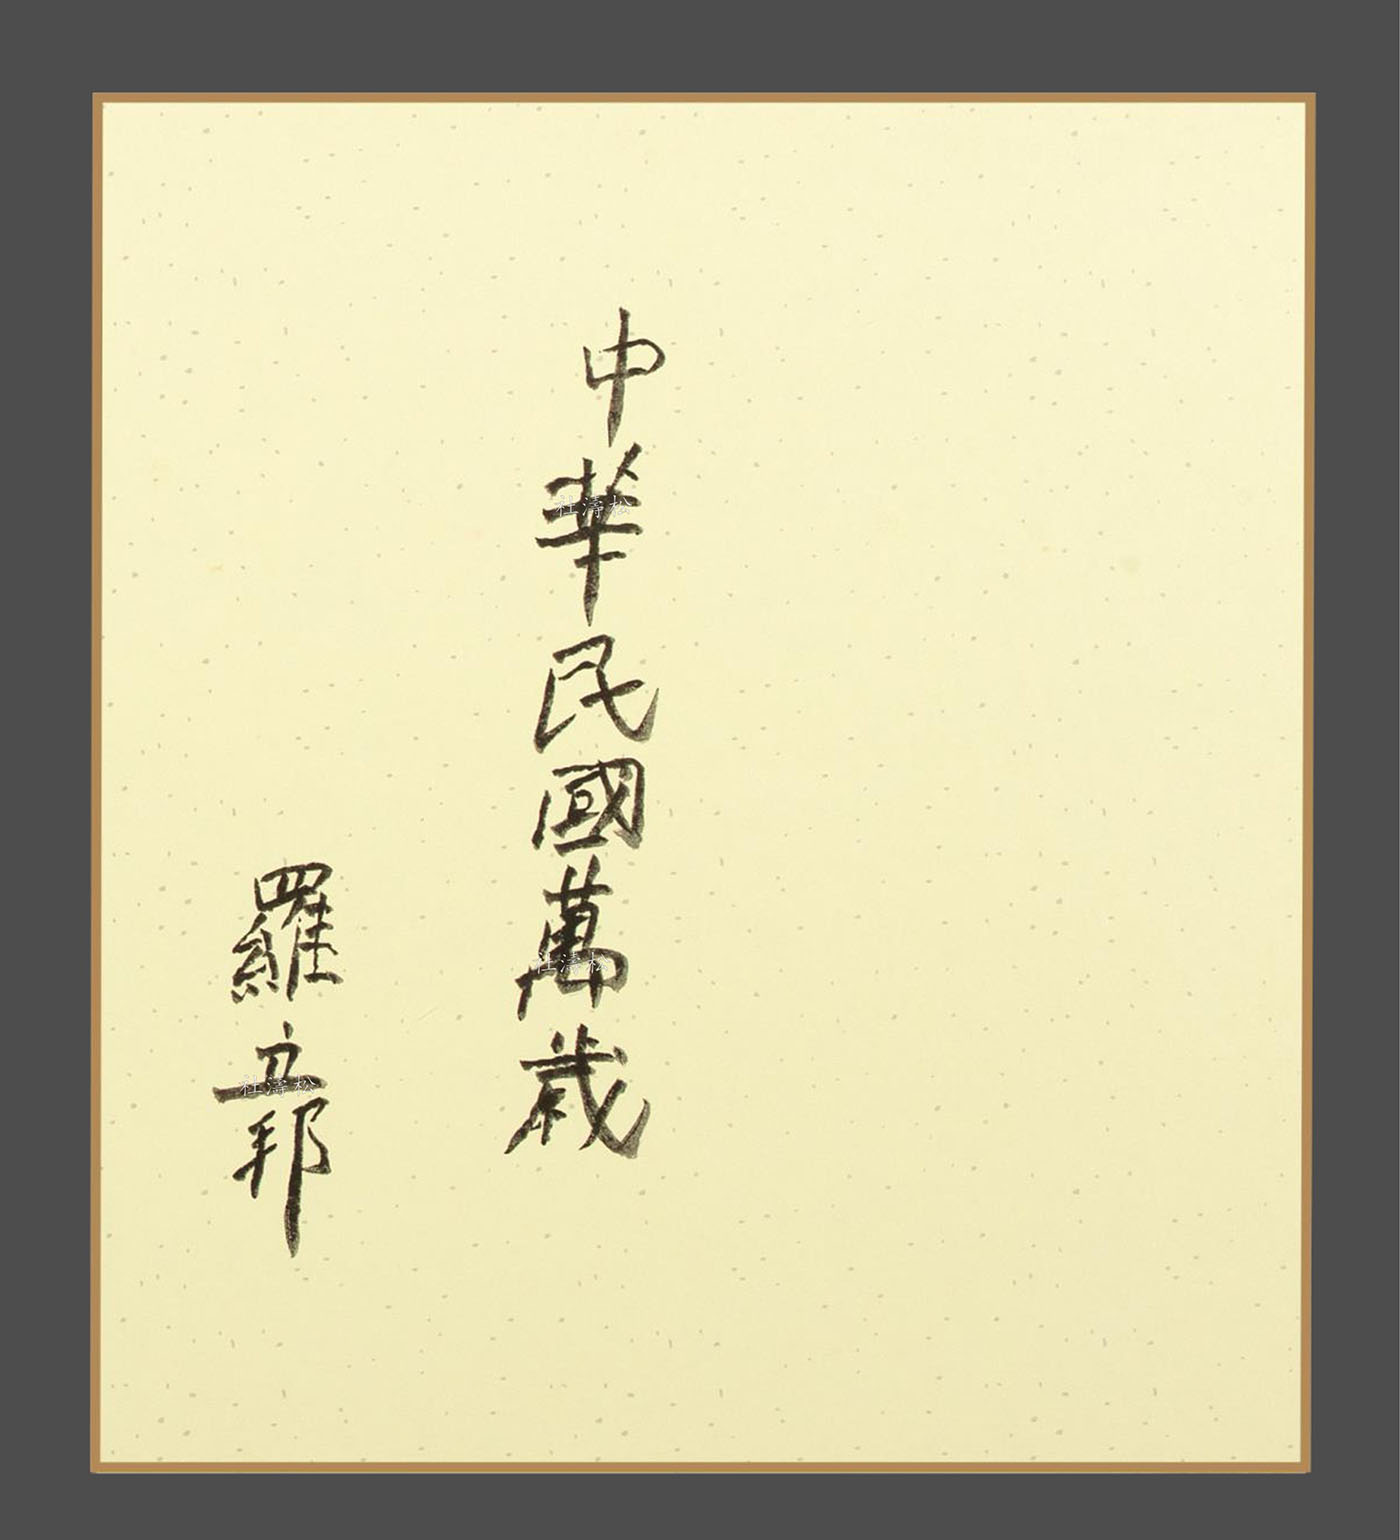 中華民國萬歲
羅立邦
杜濤松
杜濤松
杜濤松